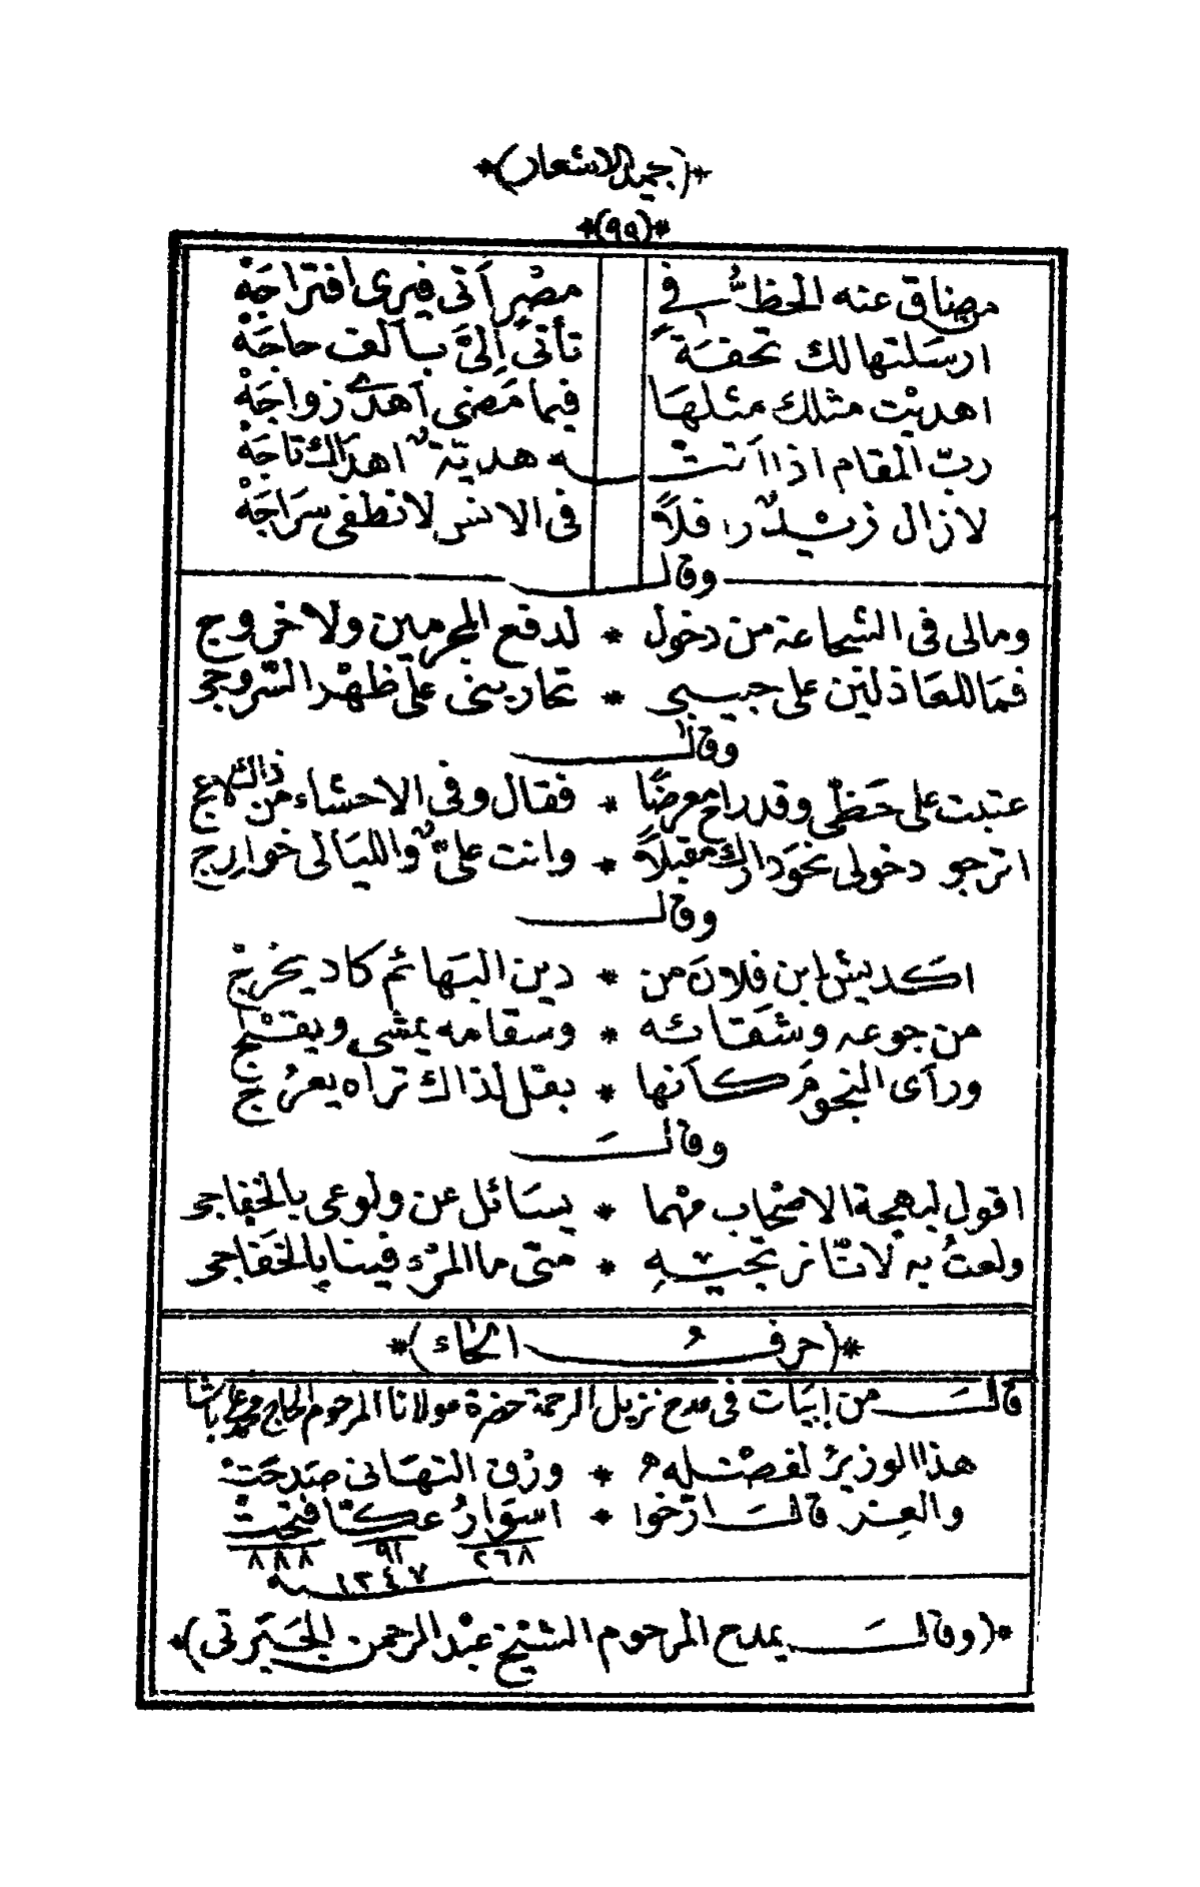 *(حميد الاشعار)*
*(٩٩)*
من ضاق عنه الحظُّ في مصْرٍ أتى فيرى افتراجَهْ
ارسَلتها لك تحفَةً تأتى اِلىَّ بآلف حاجَهْ
اهديْت مثلك مثلهَا فيما مَضى أهدى زواجَهْ
ربّ المقام اذا اَتتْه هديّةٌ اهدَاك تاجَهْ
لازال زيْدٌ رافلاً فى الانس لا تطفى سرَاجَهْ
وقال
ومالى فى الشجاعة من دخول * لدفع المجرمين ولا خروج
فمَا للعَاذلين على حبيبى * تحاربنى علَى ظهْر السّروج
وقال
عتبت على حَظّى وقد راح معرضًا * فقال وفى الاحشاء من ذاك لاعج
اترجو دخولى نحوَ دارك مقبلاً * وانت علىٌّ والليَالى خوارِج
وقال
اكَديش ابن فلان من * دين البَهائم كاد يخرُج
من جوعه وشقَائه * وسقامه يمشى ويفْحج
ورأى النجومَ كأنها * بقل لذاك تراه يعرُج
وقالَ
اقول لبهجة الاصحاب مهْما * يسَائل عن ولوعى بالخفاجى
ولعتُ به لانّا نرتجيْهِ * متَى ما المرْء فينا بالخَفَاجى
*(حرفُ الحاء)*
قالَ من ابيَات فى مدح نزيل الرحمة حضرة مولانا المرحوم الحاج محمد على باشا
هذا الوزيرُ لفضْله * ورْق التهَانى صَدحَتْ
والعِز قالَ ارّخوا * اسوَارُ عكّا فتحتْ
٢٦٨ ٩١ ٨٨٨
١٢٤٧ سنه
*(وقالَ يمدح المرحوم الشيخ عبْد الرحمن الجبَرتى)*